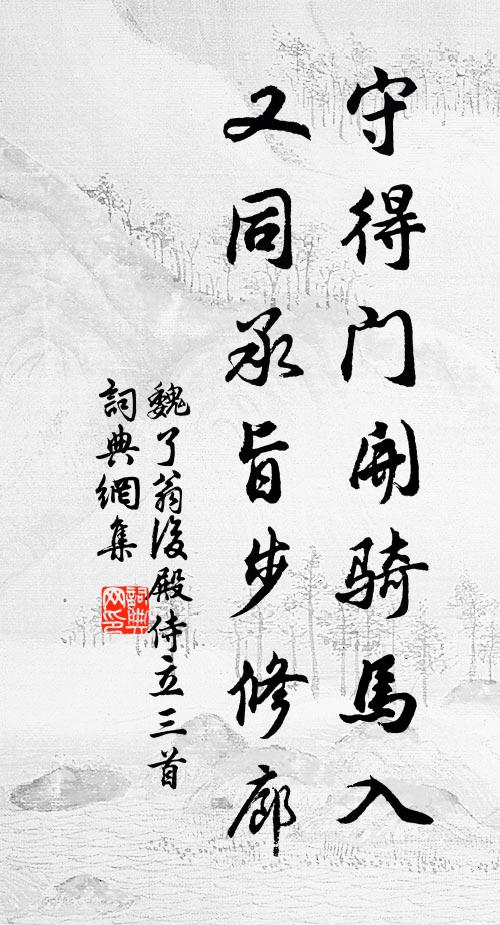 守得门开骑马入
又同承旨步修廊
魏了翁後殿侍立三首
詞典網集
詞典网印